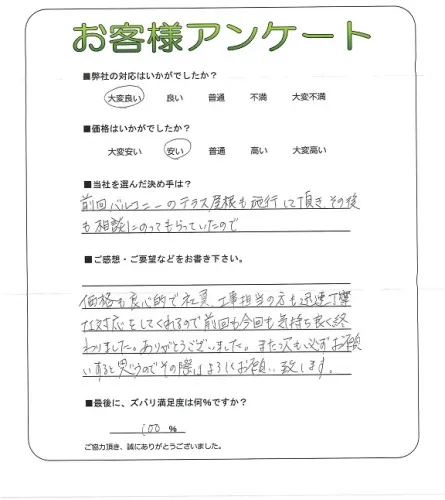 お客様アンケート
■弊社の対応はいかがでしたか？
大変良い 良い 普通 不満 大変不満
■価格はいかがでしたか？
大変安い 安い 普通 高い 大変高い
■当社を選んだ決め手は？
前回バルコニーのテラス屋根も施行して頂き、その後
も相談にのってもらっていたので
■ご感想・ご要望などをお書き下さい。
価格も良心的で社員、工事担当の方も迅速丁寧
な対応をしてくれるので前回も今回も気持ち良く終
わりました。ありがとうございました。また次も必ずお願
いすると思うのでその際はよろしくお願い致します。
■最後に、ズバリ満足度は何%ですか？
100 %
ご協力頂き、誠にありがとうございました。